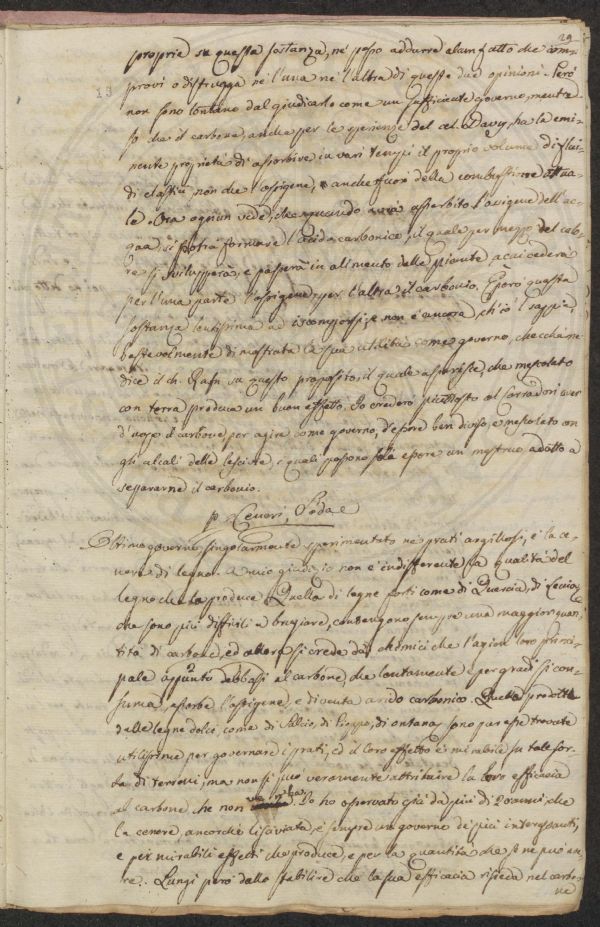 29
proprie su questa sostanza, né posso addurre alcun fatto che com-
provi o distrugga né l'una né l'altra di queste due opinioni. Però
non sono lontano dal giudicarlo come un sufficiente governo, mentre
so che il carbone, anche per le sperienze del cel. Davy, ha la emi-
nente proprietà di assorbire in vari tempi il proprio volume di flui-
di elastici non che l'ossigene, anche fuori della combustione attua-
le. Ora ognun vede, che quando avrà assorbito l'ossigene dell'ac-
qua si potrà formare l'acido carbonico, il quale per mezzo del calo-
re si svilupperà, e passerà in alimento delle piante a cui cederà
per l'una parte l'ossigene, per l'altra il carbonio. Però questa
sostanza lentissima a scomporsi, e non è ancora, ch'io sappia,
bastevolmente dimostrata la sua utilità come governo, checché ne
dice il ch. Rafn su questo proposito, il quale asserisce, che mescolato
con terra produca un buon effetto. Io crederò piuttosto al Corradori aver
d'uopo il carbone per agire come governo, d'essere ben diviso, e mescolato con
gli alcali delle lescive, i quali possono essere un mestruo adatto a
separarne il carbonio.
p Ceneri, Soda e
Ottimo governo singolarmente sperimentato ne' prati argillosi, è la ce-
nere di legno. A mio giudizio non è indifferente la qualità del
legno che la produce. Quella di legne forti come di Quercia, di
che sono più difficili a bruciare, contengono sempre una maggior quan-
tità di carbone, ed allora si crede dai chimici che l'azion loro princi-
pale appunto debbasi al carbone, che lentamente e per gradi si con-
suma, assorbe l'ossigene, e diventa acido carbonico. Quelle prodotte
dalle legne dolci, come di Salcio, di Pioppo, di ontano, sono pur esse trovate
utilissime per governare i prati, ed il loro effetto è mirabile su tale sor-
ta di terreni, ma non si può veramente attribuire la loro efficacia
al carbone, che non Io ho osservato già da più di 20 anni, che
la cenere, ancorché lisciviata, è sempre un governo dei più interessanti,
e pei mirabili effetti che produce, e per la quantità che se ne può ave-
re. Lungi però dallo stabilire che la sua efficacia risieda nel carbo-
ne